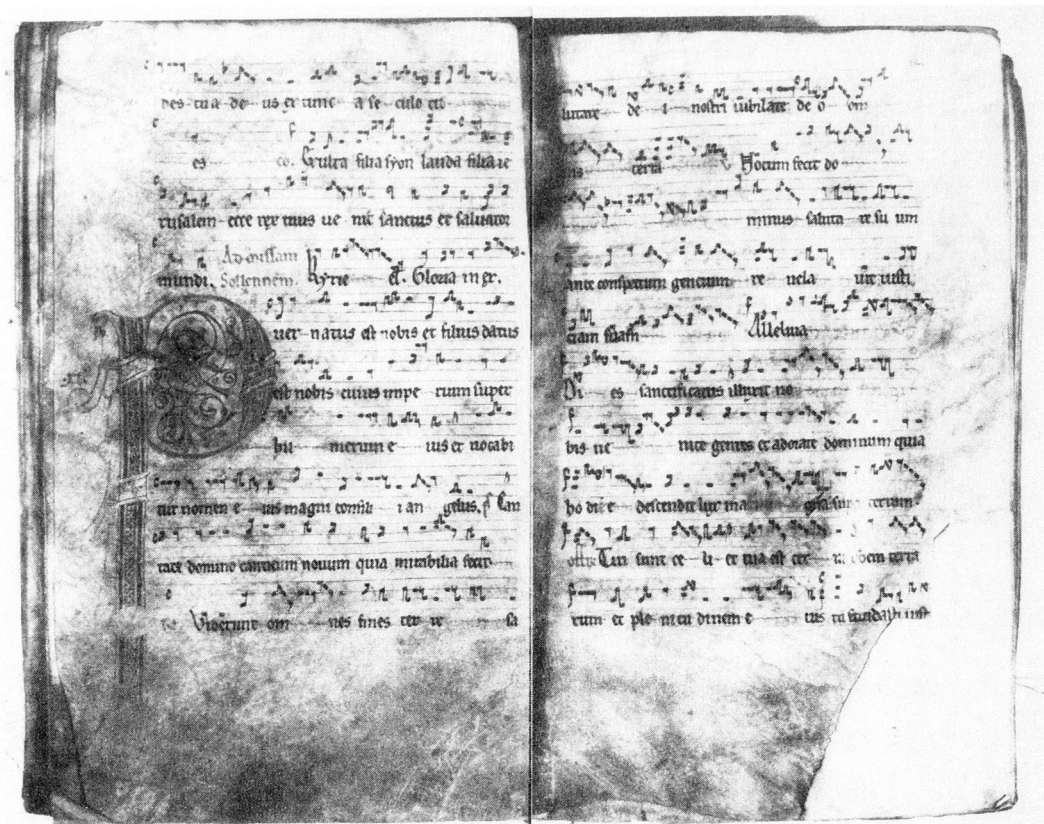 des tua de us ex tunc a se culo
es co. Exulta filia syon lauda filia ie
rusalem ecce rex tuus ue nit sanctus et saluator
mundi. Ad missam
Sollennem. Kyrie Gloria in ex.
uer natus est nobis et filius datus
est nobis cuius impe rium super
hu merum e ius et uocabi
tur nomen e ius magni consili i an gelus. Can
tate domino canticum nouum quia mirabilia fecit
Viderunt om nes fines ter re sa
lutare de i nostri iubilate de o om
nis terra Notum fecit do
minus saluta re su um
ante conspectum gencium re uela uit iusti
ciam suam Alleluia
Di es sanctificatus illuxit no
bis ue nite gentes et adorate dominum quia
ho di e descendit lux ma gna super terram
Tui sunt ce li et tua est ter ra orbem terra
rum et ple ni tu dinem e ius tu fundasti